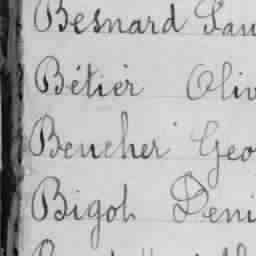 Besnard Lau
Bétier Oliv
Beucher Geo
Bigot Deni